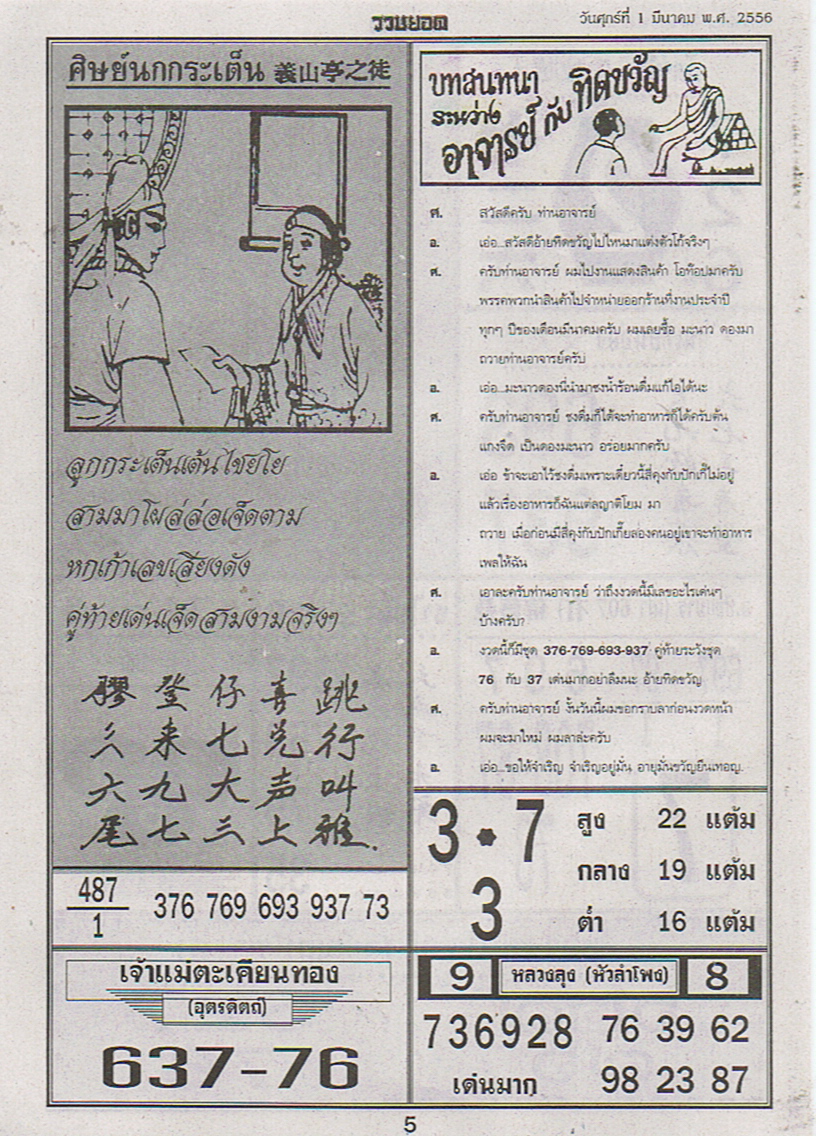 รวมยอด
วันศุกร์ที่ 1 มีนาคม พ.ศ. 2556
ศิษย์นกกระเต็น 義山亭之徒
ลูกกระเต็นเต้นไชยโย
สามมาโผล่ล่อเจ็ดตาม
หกเก้าเลขเสียงดัง
คู่ท้ายเด่นเจ็ดสามงามจริงๆ
膠登仔喜跳
三来七兑行
六九大声叫
尾七三上雅.
487
1
376 769 693 937 73
เจ้าแม่ตะเคียนทอง
(อุตรดิตถ์)
637-76
บทสนทนา
ระหว่าง
อาจารย์ กับ ทิดขวัญ
ศ. สวัสดีครับ ท่านอาจารย์
อ. เอ่อ...สวัสดีอ้ายทิดขวัญไปไหนมาแต่งตัวโก้จริงๆ
ศ. ครับท่านอาจารย์ ผมไปงานแสดงสินค้า โอท๊อปมาครับ
พรรคพวกนำสินค้าไปจำหน่ายออกร้านที่งานประจำปี
ทุกๆ ปีของเดือนมีนาคมครับ ผมเลยซื้อ มะนาว ดองมา
ถวายท่านอาจารย์ครับ
อ. เอ่อ...มะนาวดองนี่นำมาชงน้ำร้อนดื่มแก้ไอได้นะ
ศ. ครับท่านอาจารย์ ชงดื่มก็ได้จะทำอาหารก็ได้ครับต้น
แกงจืด เป็นดองมะนาว อร่อยมากครับ
อ. เอ่อ ข้าจะเอาไว้ชงดื่มเพราะเดี๋ยวนี้สี่คุงกับปักเกี้ไม่อยู่
แล้วเรื่องอาหารก็ฉันแต่ลญาติโยม มา
ถวาย เมื่อก่อนมีสี่คุงกับปักเกี๊ยสองคนอยู่เขาจะทำอาหาร
เพลให้ฉัน
ศ. เอาละครับท่านอาจารย์ ว่าถึงงวดนี้มีเลขอะไรเด่นๆ
บ้างครับ?
อ. งวดนี้ก็มีชุด 376-769-693-937 คู่ท้ายระวังชุด
76 กับ 37 เด่นมากอย่าลืมนะ อ้ายทิดขวัญ
ศ. ครับท่านอาจารย์ งั้นวันนี้ผมขอกราบลาก่อนงวดหน้า
ผมจะมาใหม่ ผมลาล่ะครับ
อ. เอ่อ...ขอให้จำเริญ จำเริญอยู่มั่น อายุมั่นขวัญยืนเทอญ.
3 • 7
3
สูง 22 แต้ม
กลาง 19 แต้ม
ต่ำ 16 แต้ม
9 หลวงลุง (หัวลำโพง) 8
736928 76 39 62
เด่นมาก 98 23 87
5